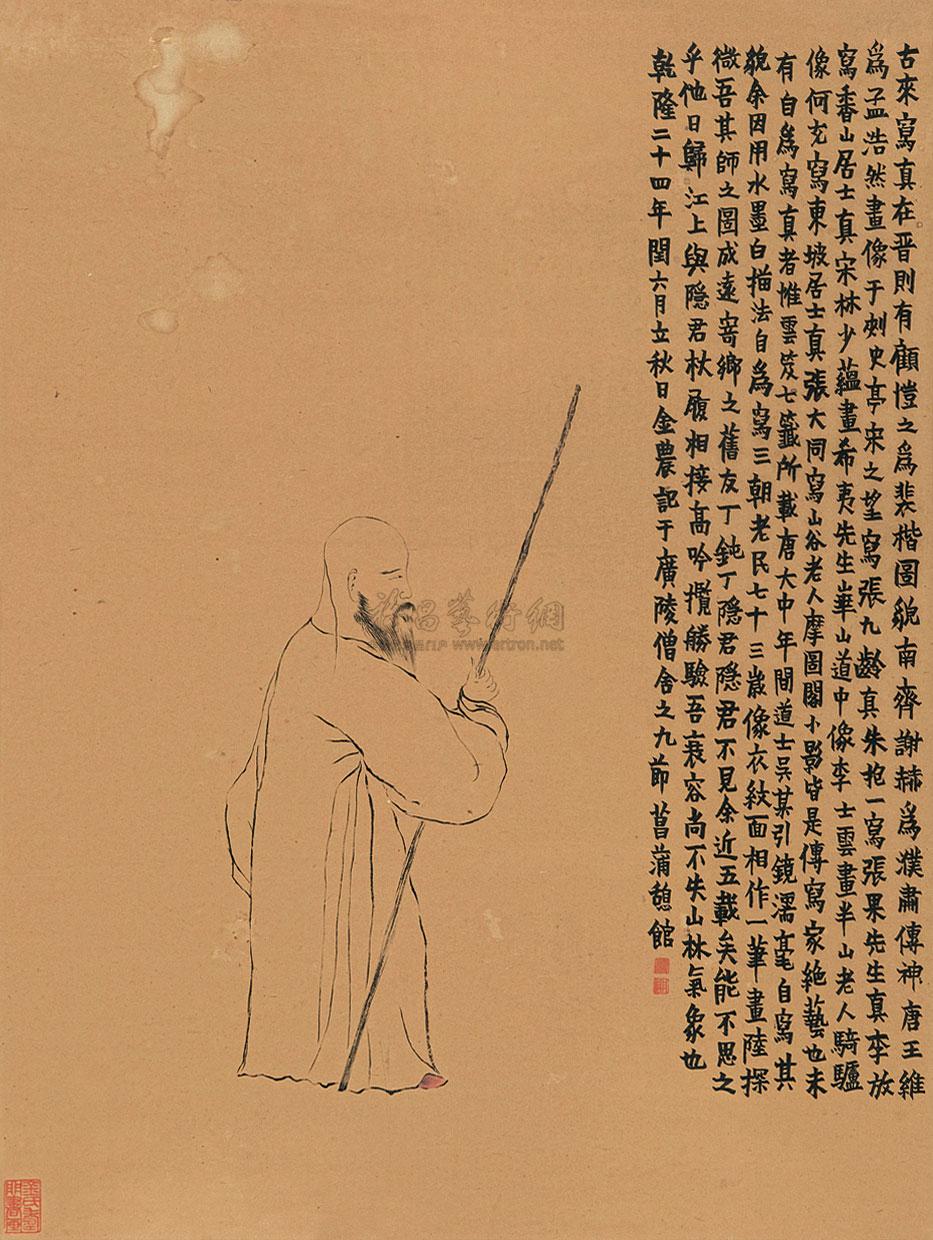 古來寫真在晋則有顧愷之爲裴楷圖貌南齊謝赫爲濮肅傳神唐王維
爲孟浩然畫像于刺史亭宋之望寫張九齡真朱抱一寫張果先生真李放
寫香山居士真宋林少蘊畫希夷先生華山道中像李士雲畫半山老人騎驢
像何充寫東坡居士真張大同寫山谷老人摩圍閣小影皆是傳寫家絕藝也未
有自爲寫真者惟雲笈七籤所載唐大中年間道士吴某引鏡濡毫自寫其
貌余因用水墨白描法自爲寫三朝老民七十三歲像衣紋面相作一筆畫陸探
微吾其師之圖成遠寄鄉之舊友丁鈍丁隱君隱君不見余近五載矣能不思之
乎他日歸江上與隱君杖履相接高吟攬勝驗吾衰容尚不失山林氣象也
乾隆二十四年閏六月立秋日金農記于廣陵僧舍之九節菖蒲憩館
artron.net